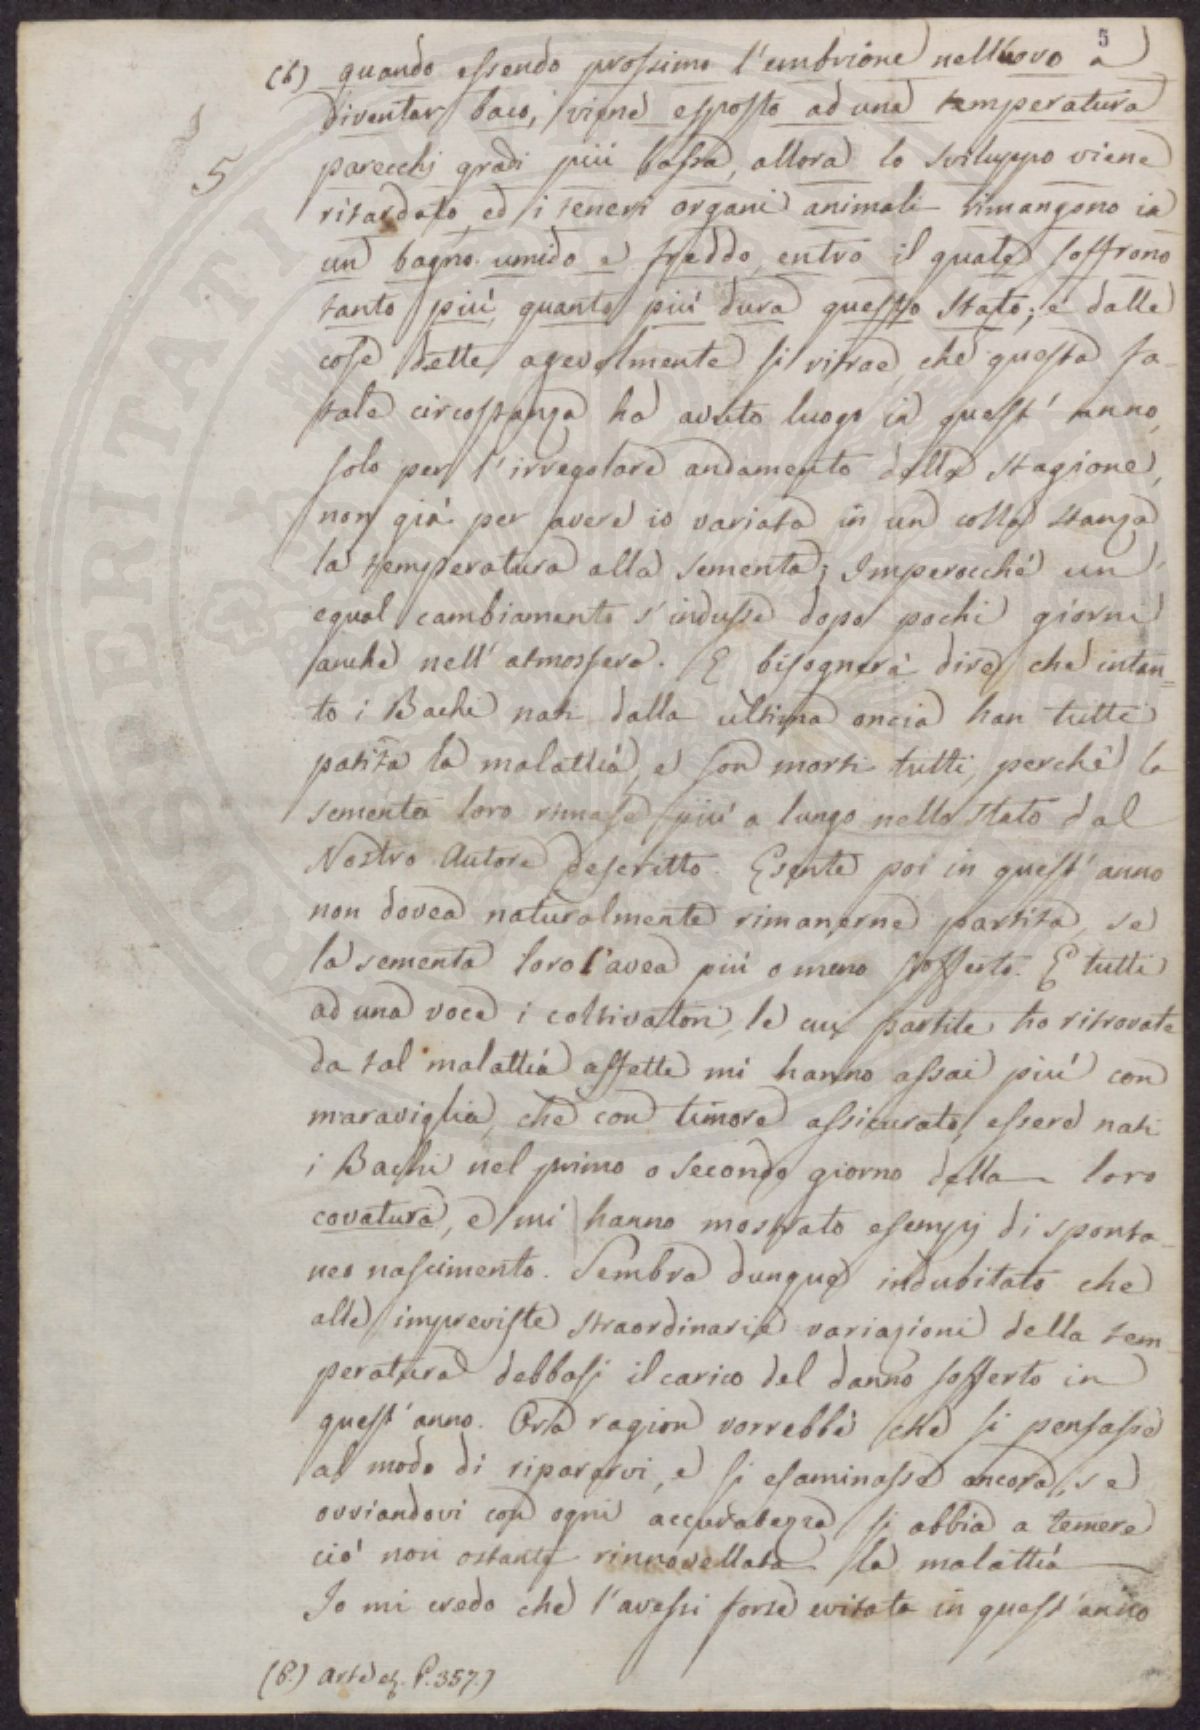 5
(b) quando essendo prossimo l'embrione nell'uovo a
diventar baco, viene esposto ad una temperatura
5
parecchj gradi più bassa, allora lo sviluppo viene
ritardato, ed i teneri organi animali rimangono in
un bagno umido e freddo, entro il quale soffrono
tanto più, quanto più dura questo stato; e dalle
cose dette agevolmente si ritrae, che questa fa-
tale circostanza ha avuto luogo in quest' anno,
solo per l'irregolare andamento della stagione,
non già per avere io variata in un colla stanza
la temperatura alla sementa; Imperocchè un
egual cambiamento s'indusse dopo pochi giorni
anche nell' atmosfera. E bisognerà dire, che intan=
to i Bachi nati dalla ultima oncia han tutti
patita la malattia, e son morti tutti, perchè la
sementa loro rimase più a lungo nello stato dal
Nostro Autore descritto. Esente poi in quest' anno
non dovea naturalmente rimanerne partita, se
la sementa loro l'avea più o meno sofferto. E tutti
ad una voce i coltivatori, le cui partite ho ritrovate
da tal malattia affette mi hanno assai più con
maraviglia, che con timore assicurato, essere nati
i Bachi nel primo o secondo giorno della loro
covatura, e mi hanno mostrato esempj di sponta-
neo nascimento. Sembra dunque indubitato che
alle impreviste straordinarie variazioni della tem-
peratura debbasi il carico del danno sofferto in
quest' anno. Ora ragion vorrebbe che si pensasse
al modo di ripararvi, e si esaminasse ancora, se
ovviandovi con ogni accuratezza si abbia a temere
ciò non ostante rinnovellata la malattia
Io mi credo che l'avessi forse evitata in quest' anno
(b.) arte P. 357.)
PERITATI